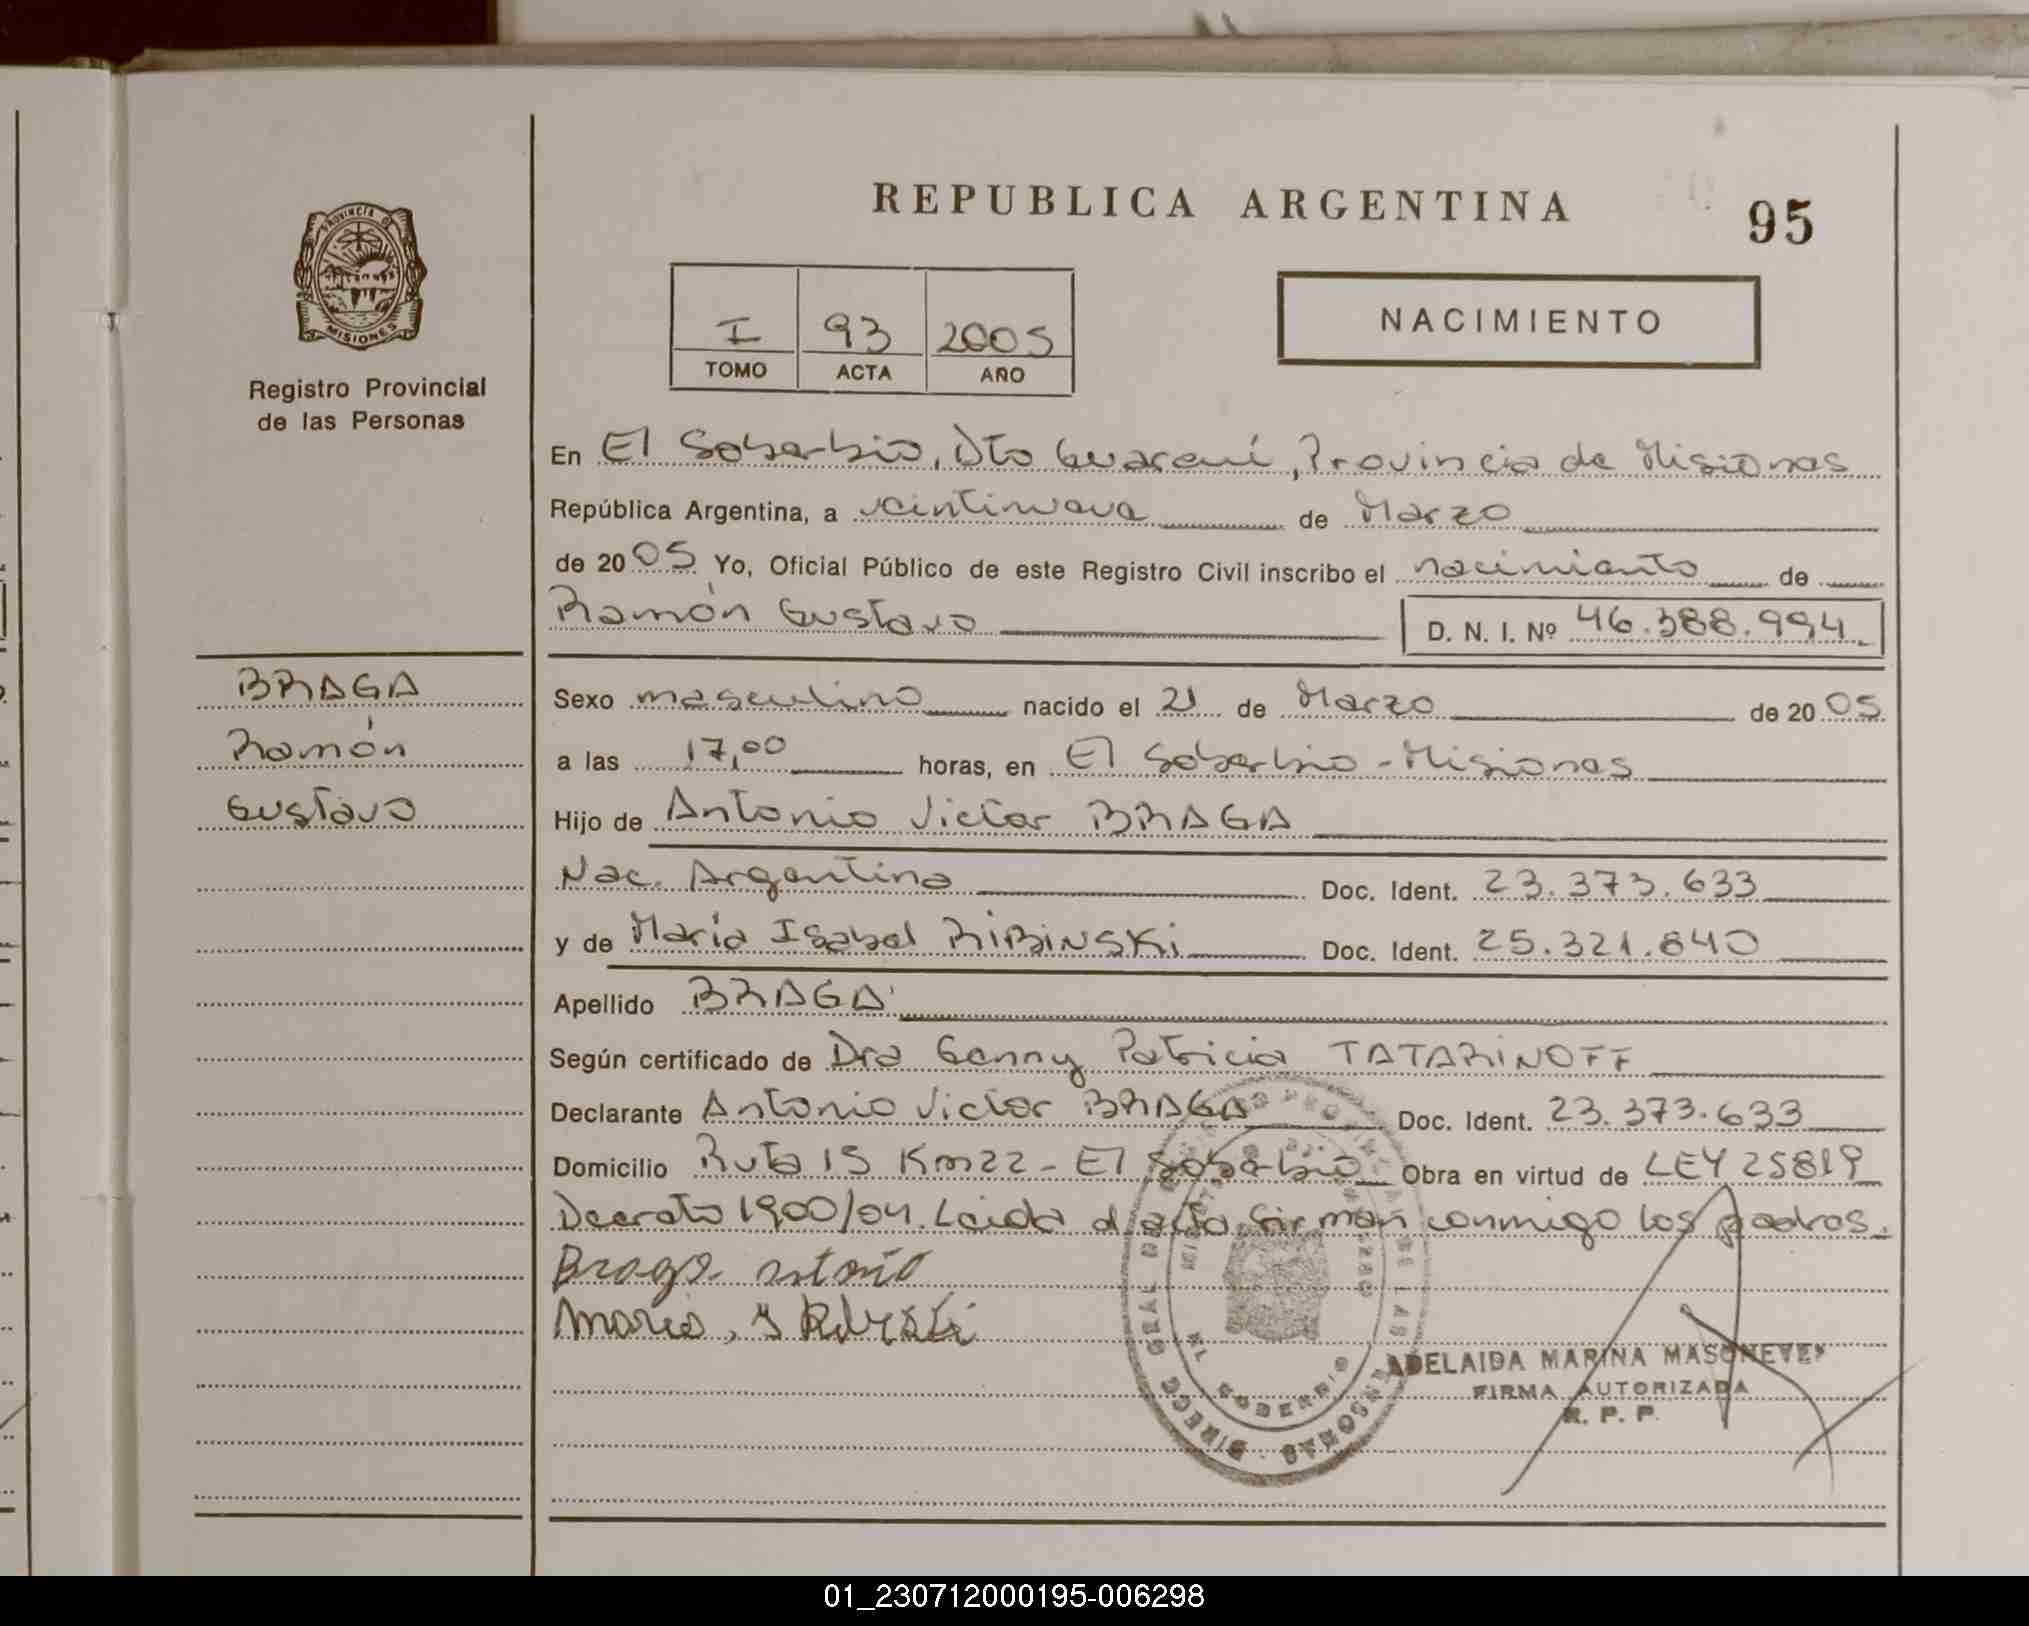 REPUBLICA ARGENTINA
95
PROVINCIA DE
MISIONES
Registro Provincial
de las Personas
I 93 2005
TOMO ACTA AÑO
NACIMIENTO
En El Soberbio, Dto Guaraní, Provincia de Misiones
República Argentina, a veintinueve de Marzo
de 2005 Yo, Oficial Público de este Registro Civil inscribo el nacimiento de
Ramón Gustavo D. N. I. Nº 46.388.994
BRAGA
Ramón
Gustavo
Sexo masculino nacido el 21 de Marzo de 2005
a las 17,00 horas, en El Soberbio - Misiones
Hijo de Antonio Victor BRAGA
Nac. Argentina Doc. Ident. 23.373.633
y de María Isabel RIBINSKi Doc. Ident. 25.321.840
Apellido BRAGA
Según certificado de Dra Genny Patricia TATARINOFF
Declarante Antonio Victor BRAGA Doc. Ident. 23.373.633
Domicilio Ruta 15 Km 22 - El Soberbio Obra en virtud de LEY 25819
Decreto 1900/04. Leida el acta firman conmigo los padres.
Braga
Maria
DIRECC GRAL DE PROVINCIAL DE LAS PERSONAS
EL SOBERBIO
ADELAIDA MARINA
FIRMA AUTORIZADA
R. P. P.
01_230712000195-006298